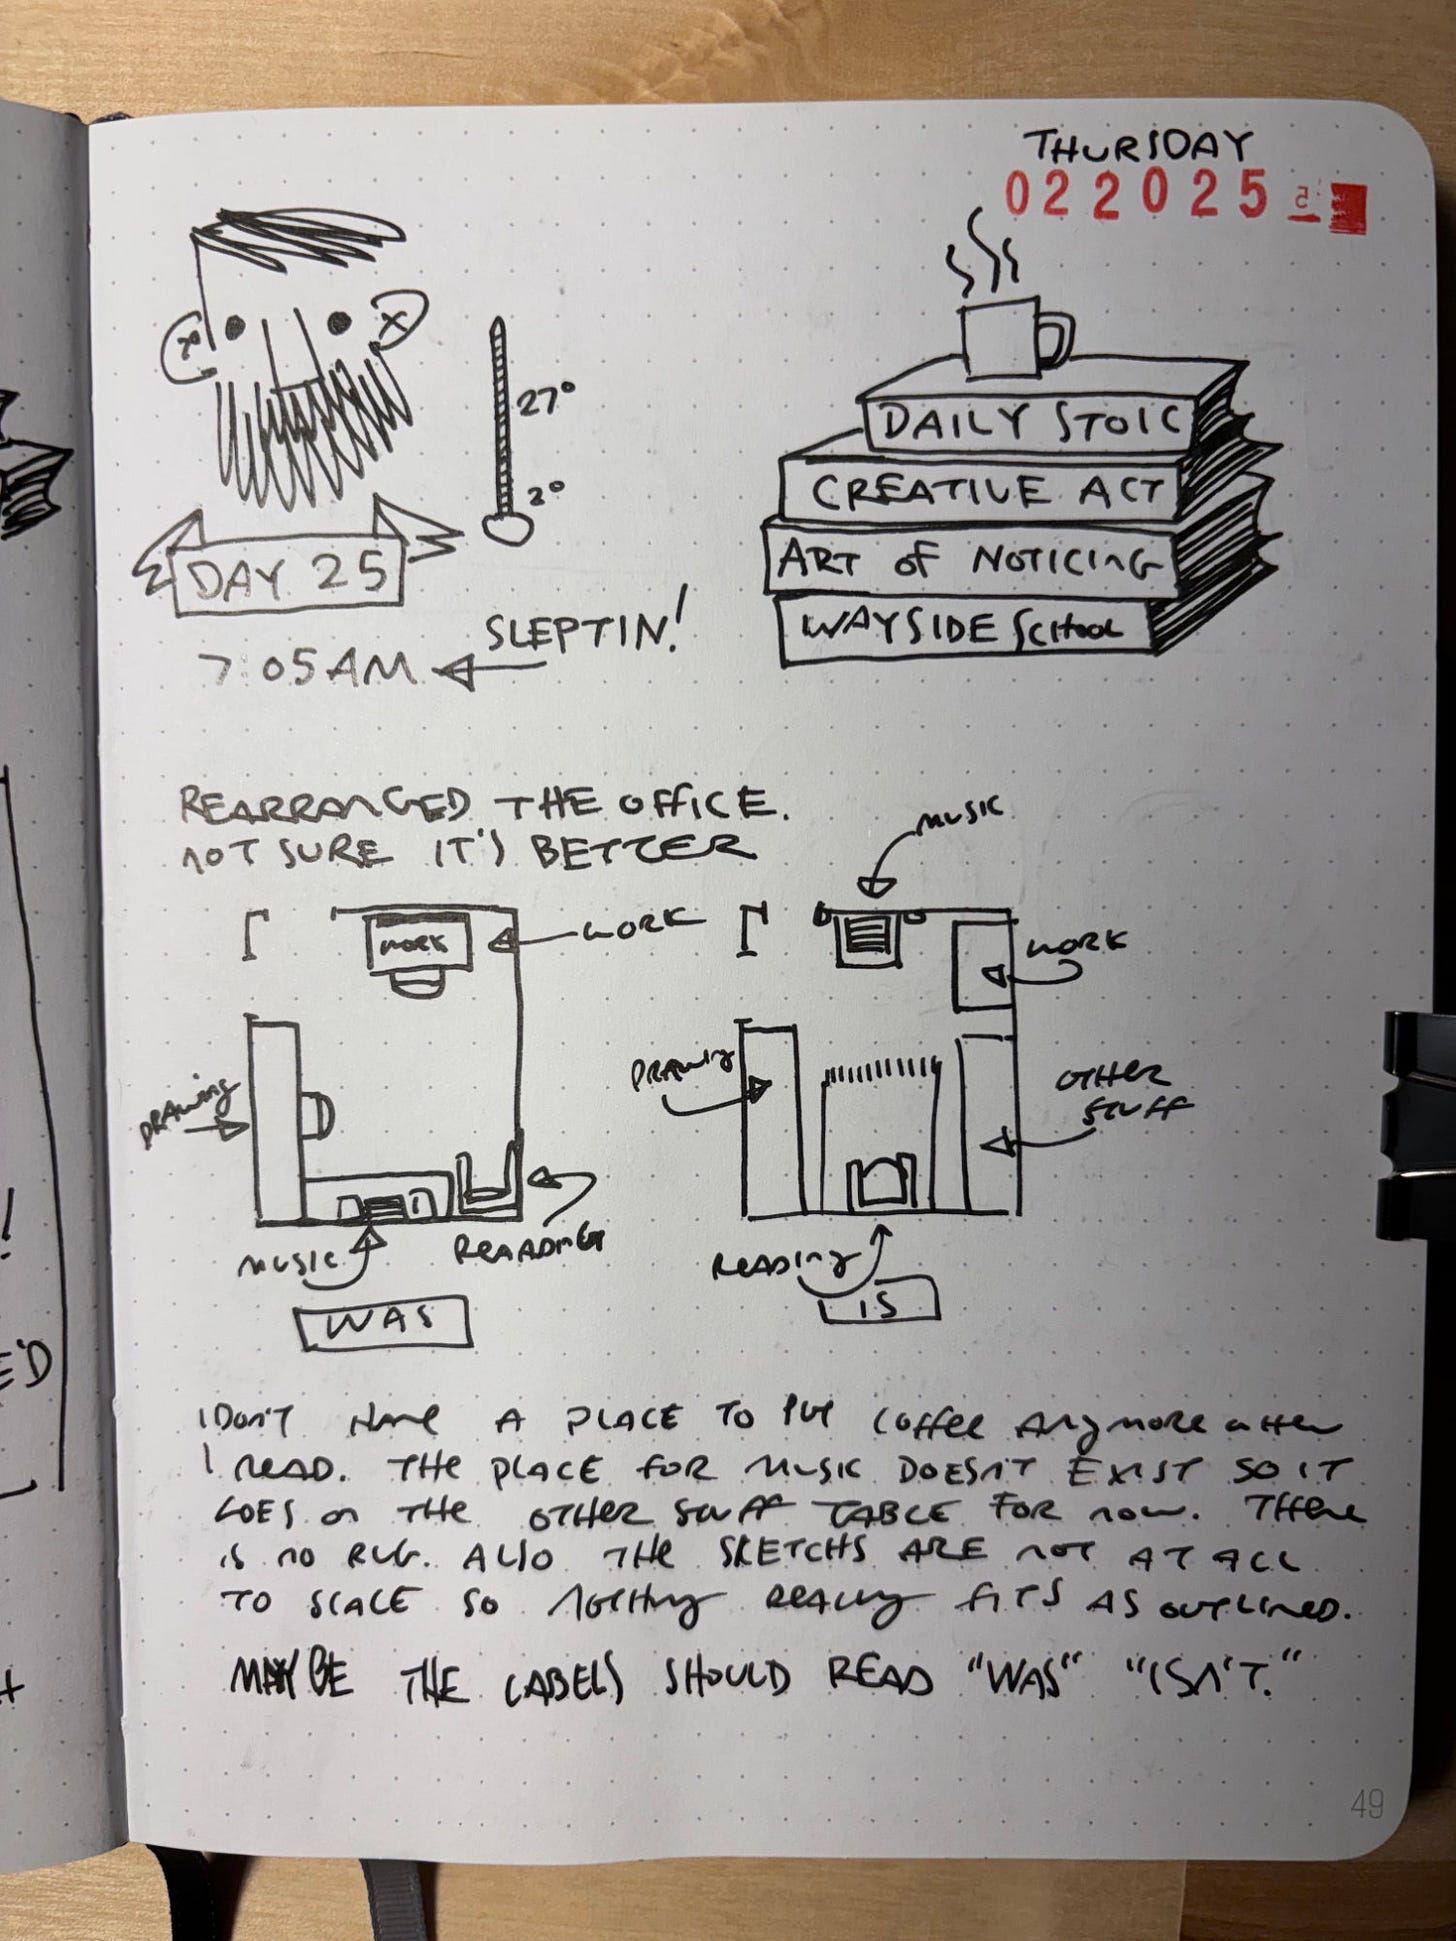 THURSDAY
022025
27°
2°
DAY 25
7:05AM
SLEPTIN!
DAILY STOIC
CREATIVE ACT
ART OF NOTICING
WAYSIDE SCHOOL
REARRANGED THE OFFICE.
NOT SURE IT'S BETTER
WORK
WORK
DRAWING
MUSIC
REAADING
WAS
MUSIC
WORK
DRAWING
OTHER
STUFF
READING
IS
I DON'T HAVE A PLACE TO PUT COFFEE ANYMORE WHEN
I READ. THE PLACE FOR MUSIC DOESN'T EXIST SO IT
GOES ON THE OTHER STUFF TABLE FOR NOW. THERE
IS NO RUG. ALSO THE SKETCHS ARE NOT AT ALL
TO SCALE SO NOTHING REALLY FITS AS OUTLINED.
MAYBE THE LABELS SHOULD READ "WAS" "ISN'T."
49
E'D